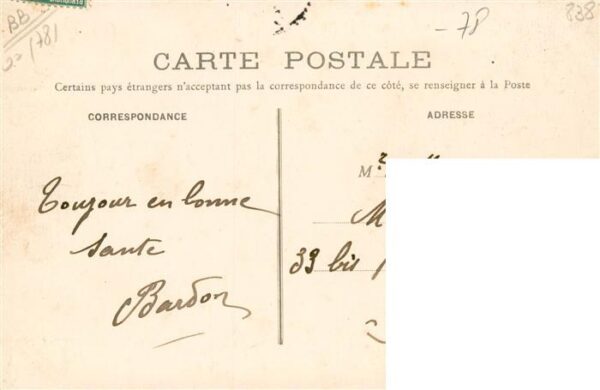 BB
1781
-78
838
CARTE POSTALE
Certains pays étrangers n'acceptant pas la correspondance de ce côté, se renseigner à la Poste
CORRESPONDANCE
ADRESSE
Toujour en bonne
sante
Bardon
M
M
33 bis